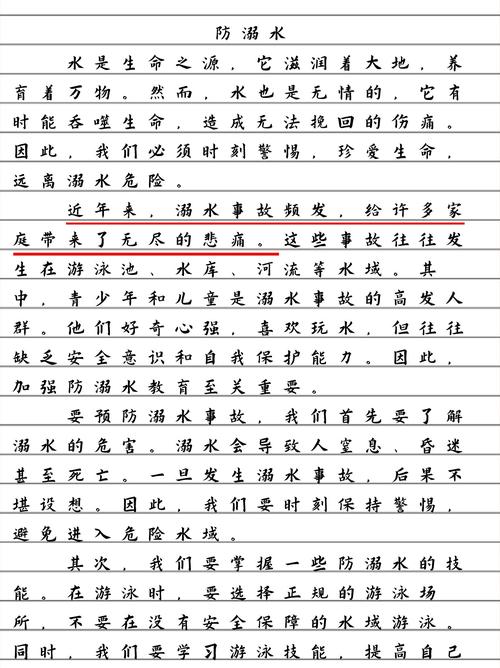 防溺水
水是生命之源，它滋润着大地，养
育着万物。然而，水也是无情的，它有
时能吞噬生命，造成无法挽回的伤痛。
因此，我们必须时刻警惕，珍爱生命，
远离溺水危险。
近年来，溺水事故频发，给许多家
庭带来了无尽的悲痛。这些事故往往发
生在游泳池、水库、河流等水域。其
中，青少年和儿童是溺水事故的高发人
群。他们好奇心强，喜欢玩水，但往往
缺乏安全意识和自我保护能力。因此，
加强防溺水教育至关重要。
要预防溺水事故，我们首先要了解
溺水的危害。溺水会导致人窒息、昏迷
甚至死亡。一旦发生溺水事故，后果不
堪设想。因此，我们要时刻保持警惕，
避免进入危险水域。
其次，我们要掌握一些防溺水的技
能。在游泳时，要选择正规的游泳场
所，不要在没有安全保障的水域游泳。
同时，我们要学习游泳技能，提高自己